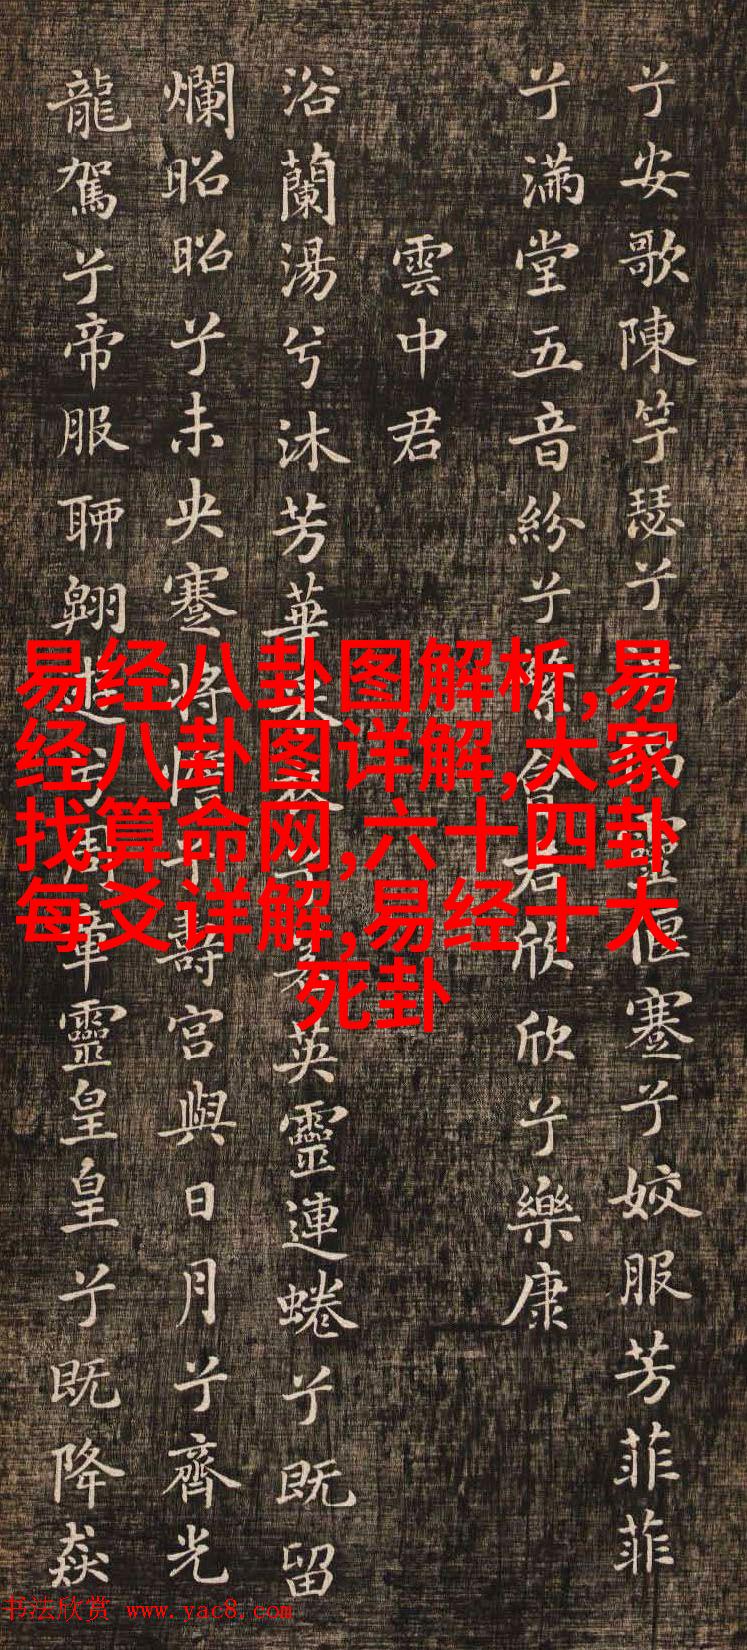 兮安歌陳竽瑟兮靈偃蹇兮姣服芳菲菲
兮滿堂五音紛兮繁會君欣欣兮樂康
雲中君
浴蘭湯兮沐芳華采衣兮若英靈連蜷兮既留
爛昭昭兮未央蹇將憺兮壽宮與日月兮齊光
龍駕兮帝服聊翱遊兮周章靈皇皇兮既降猋
易经八卦图解析,易
经八卦图详解,大家
找算命网,六十四卦
每爻详解,易经十大
死卦
书法欣赏 www.yac8.com